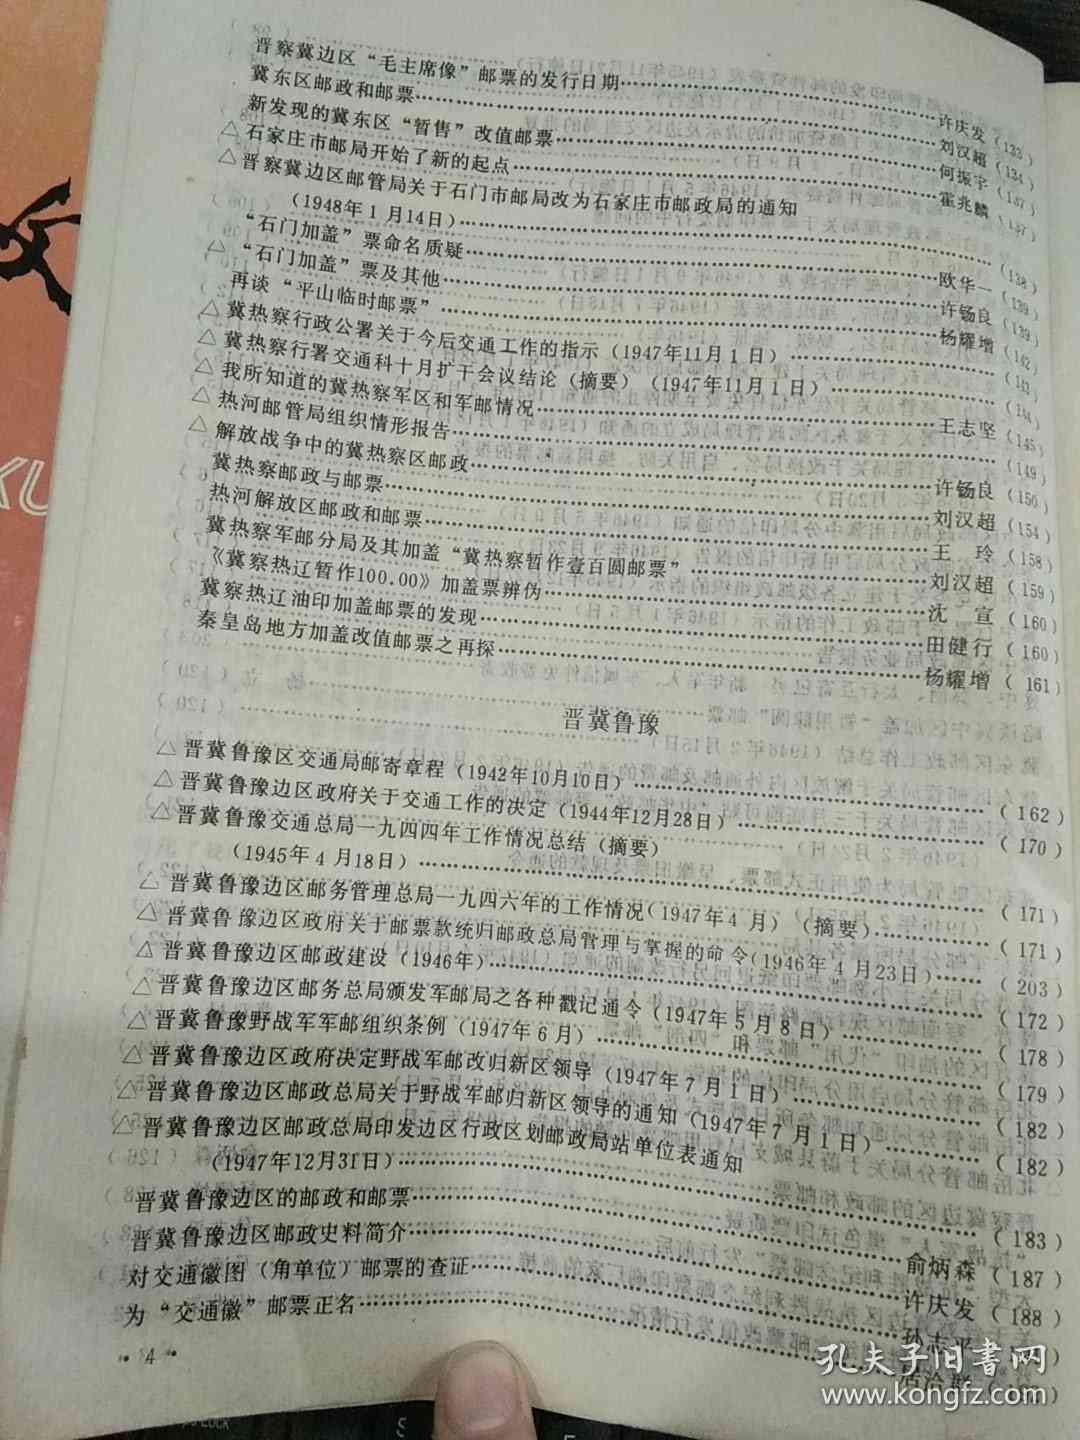 晋察冀边区“毛主席像”邮票的发行日期……许庆发（133）
冀东区邮政和邮票……刘汉超（134）
新发现的冀东区“暂售”改值邮票……何振宇（137）
△石家庄市邮局开始了新的起点……霍兆麟（137）
△晋察冀边区邮管局关于石门市邮局改为石家庄市邮政局的通知
（1948年1月14日）……（138）
“石门加盖”票命名质疑……欧华一（139）
△“石门加盖”票及其他……许钖良（139）
再谈“平山临时邮票”……杨耀增（142）
△冀热察行政公署关于今后交通工作的指示（1947年11月1日）……（143）
△冀热察行署交通科十月扩干会议结论（摘要）（1947年11月1日）……（144）
△我所知道的冀热察军区和军邮情况……王志坚（145）
△热河邮管局组织情形报告……（149）
△解放战争中的冀热察区邮政……许钖良（150）
冀热察邮政与邮票……刘汉超（154）
热河解放区邮政和邮票……王 玲（158）
冀热察军邮分局及其加盖“冀热察暂作壹百圆邮票”……刘汉超（159）
《冀察热辽暂作100.00》加盖票辨伪……沈 宣（160）
冀察热辽油印加盖邮票的发现……田健行（160）
秦皇岛地方加盖改值邮票之再探……杨耀增（161）
晋冀鲁豫
△晋冀鲁豫区交通局邮寄章程（1942年10月10日）……（162）
△晋冀鲁豫区政府关于交通工作的决定（1944年12月28日）……（170）
△晋冀鲁豫交通总局一九四四年工作情况总结（摘要）
（1945年4月18日）……（171）
△晋冀鲁豫边区邮务管理总局一九四六年的工作情况（1947年4月）（摘要）……（171）
△晋冀鲁豫边区政府关于邮票款统归邮政总局管理与掌握的命令（1946年4月23日）……（203）
△晋冀鲁豫边区邮政建设（1946年）……（172）
△晋冀鲁豫边区邮务总局颁发军邮局之各种戳记通令（1947年5月8日）……（178）
△晋冀鲁豫野战军军邮组织条例（1947年6月）……（179）
△晋冀鲁豫边区政府决定野战军邮改归新区领导（1947年7月1日）……（182）
△晋冀鲁豫边区邮政总局关于野战军邮归新区领导的通知（1947年7月1日）……（182）
△晋冀鲁豫边区邮政总局印发边区行政区划邮政局站单位表通知
（1947年12月31日）……（183）
晋冀鲁豫边区的邮政和邮票……俞炳森（187）
晋冀鲁豫边区邮政史料简介……许庆发（188）
对交通徽图（角单位）邮票的查证……孙志平
为“交通徽”邮票正名……
· 4 ·
孔夫子旧书网
www.kongfz.com